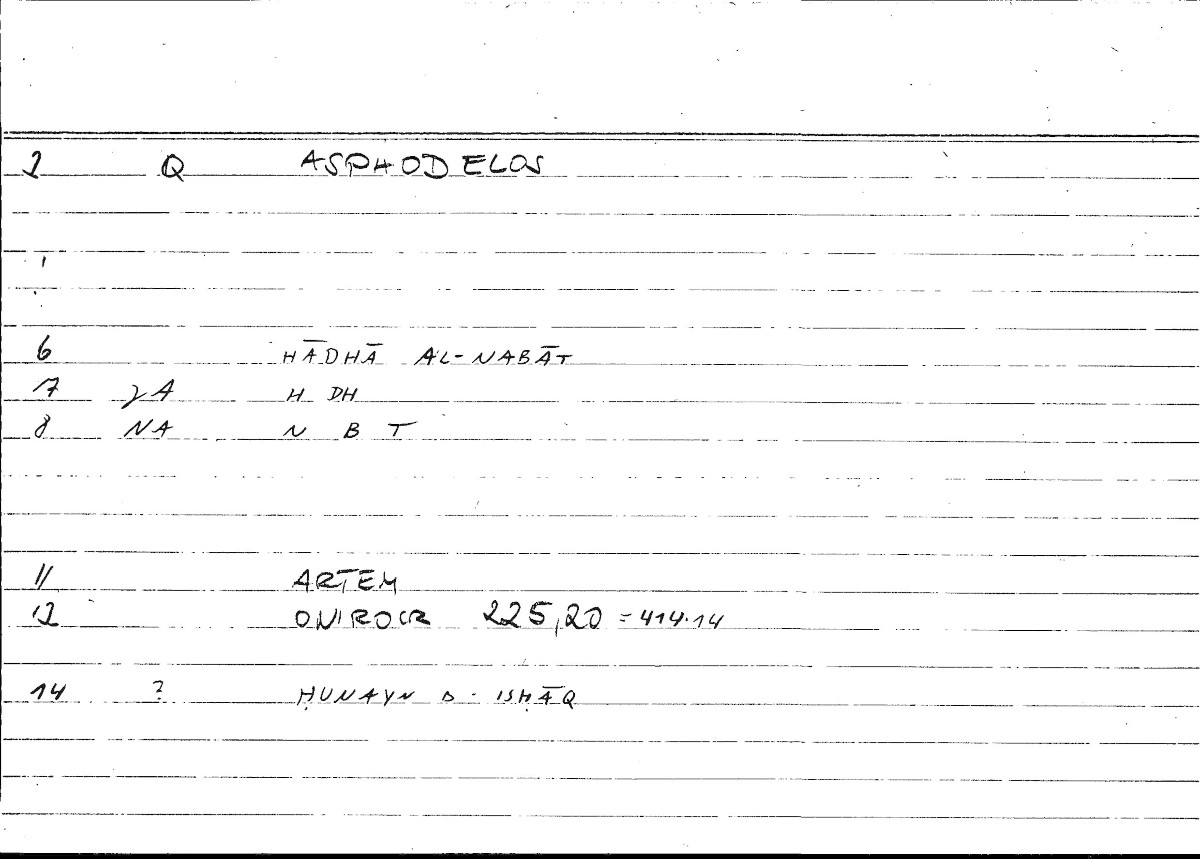 2 Q ASPHODELOS
6 HĀDHĀ AL-NABĀT
7 γA H DH
8 NA N B T
11 ARTEM
12 ONIROCR 225,20 = 414.14
14 ? ḤUNAYN B. ISḤĀQ